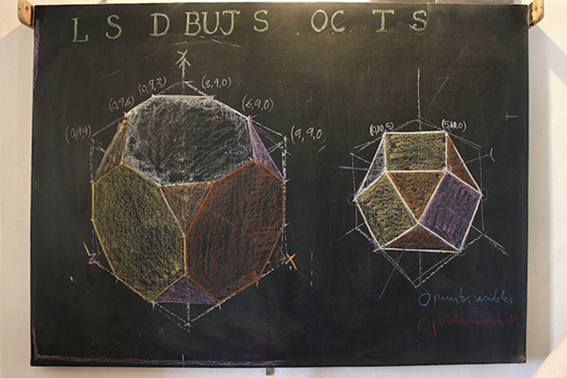 L S D BUJ S OC T S
Y
(0,9,3) (3,9,0)
(0,9,6) (6,9,0)
(0,9,9) (9,9,0)
(0,10,5) (5,10,0)
Z X
O puntos visibles
O puntos